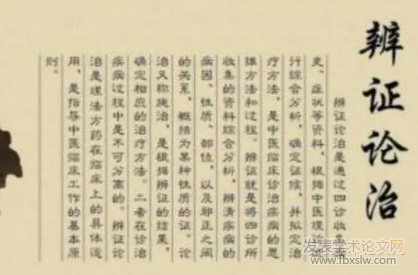 辨证论治
辨证论治是通过四诊收集
史、症状等资料，根据中医理论进
行综合分析，确定证候，并拟定治
疗方法，是中医诊治疾病的思
维方法和过程。辨证就是将四诊所
收集的资料综合分析，辨清疾病的
病因、性质、部位，以及邪正之间
的关系，概括为某种性质的证。论
治又称施治，是根据辨证的结果，
确定相应的治疗方法。二者在诊治
疾病过程中是不可分离的。辨证论
治是理法方药在临床上的具体运
用，是指导中医临床工作的基本原
则。
发表学术论文网
www.fbxslw.com